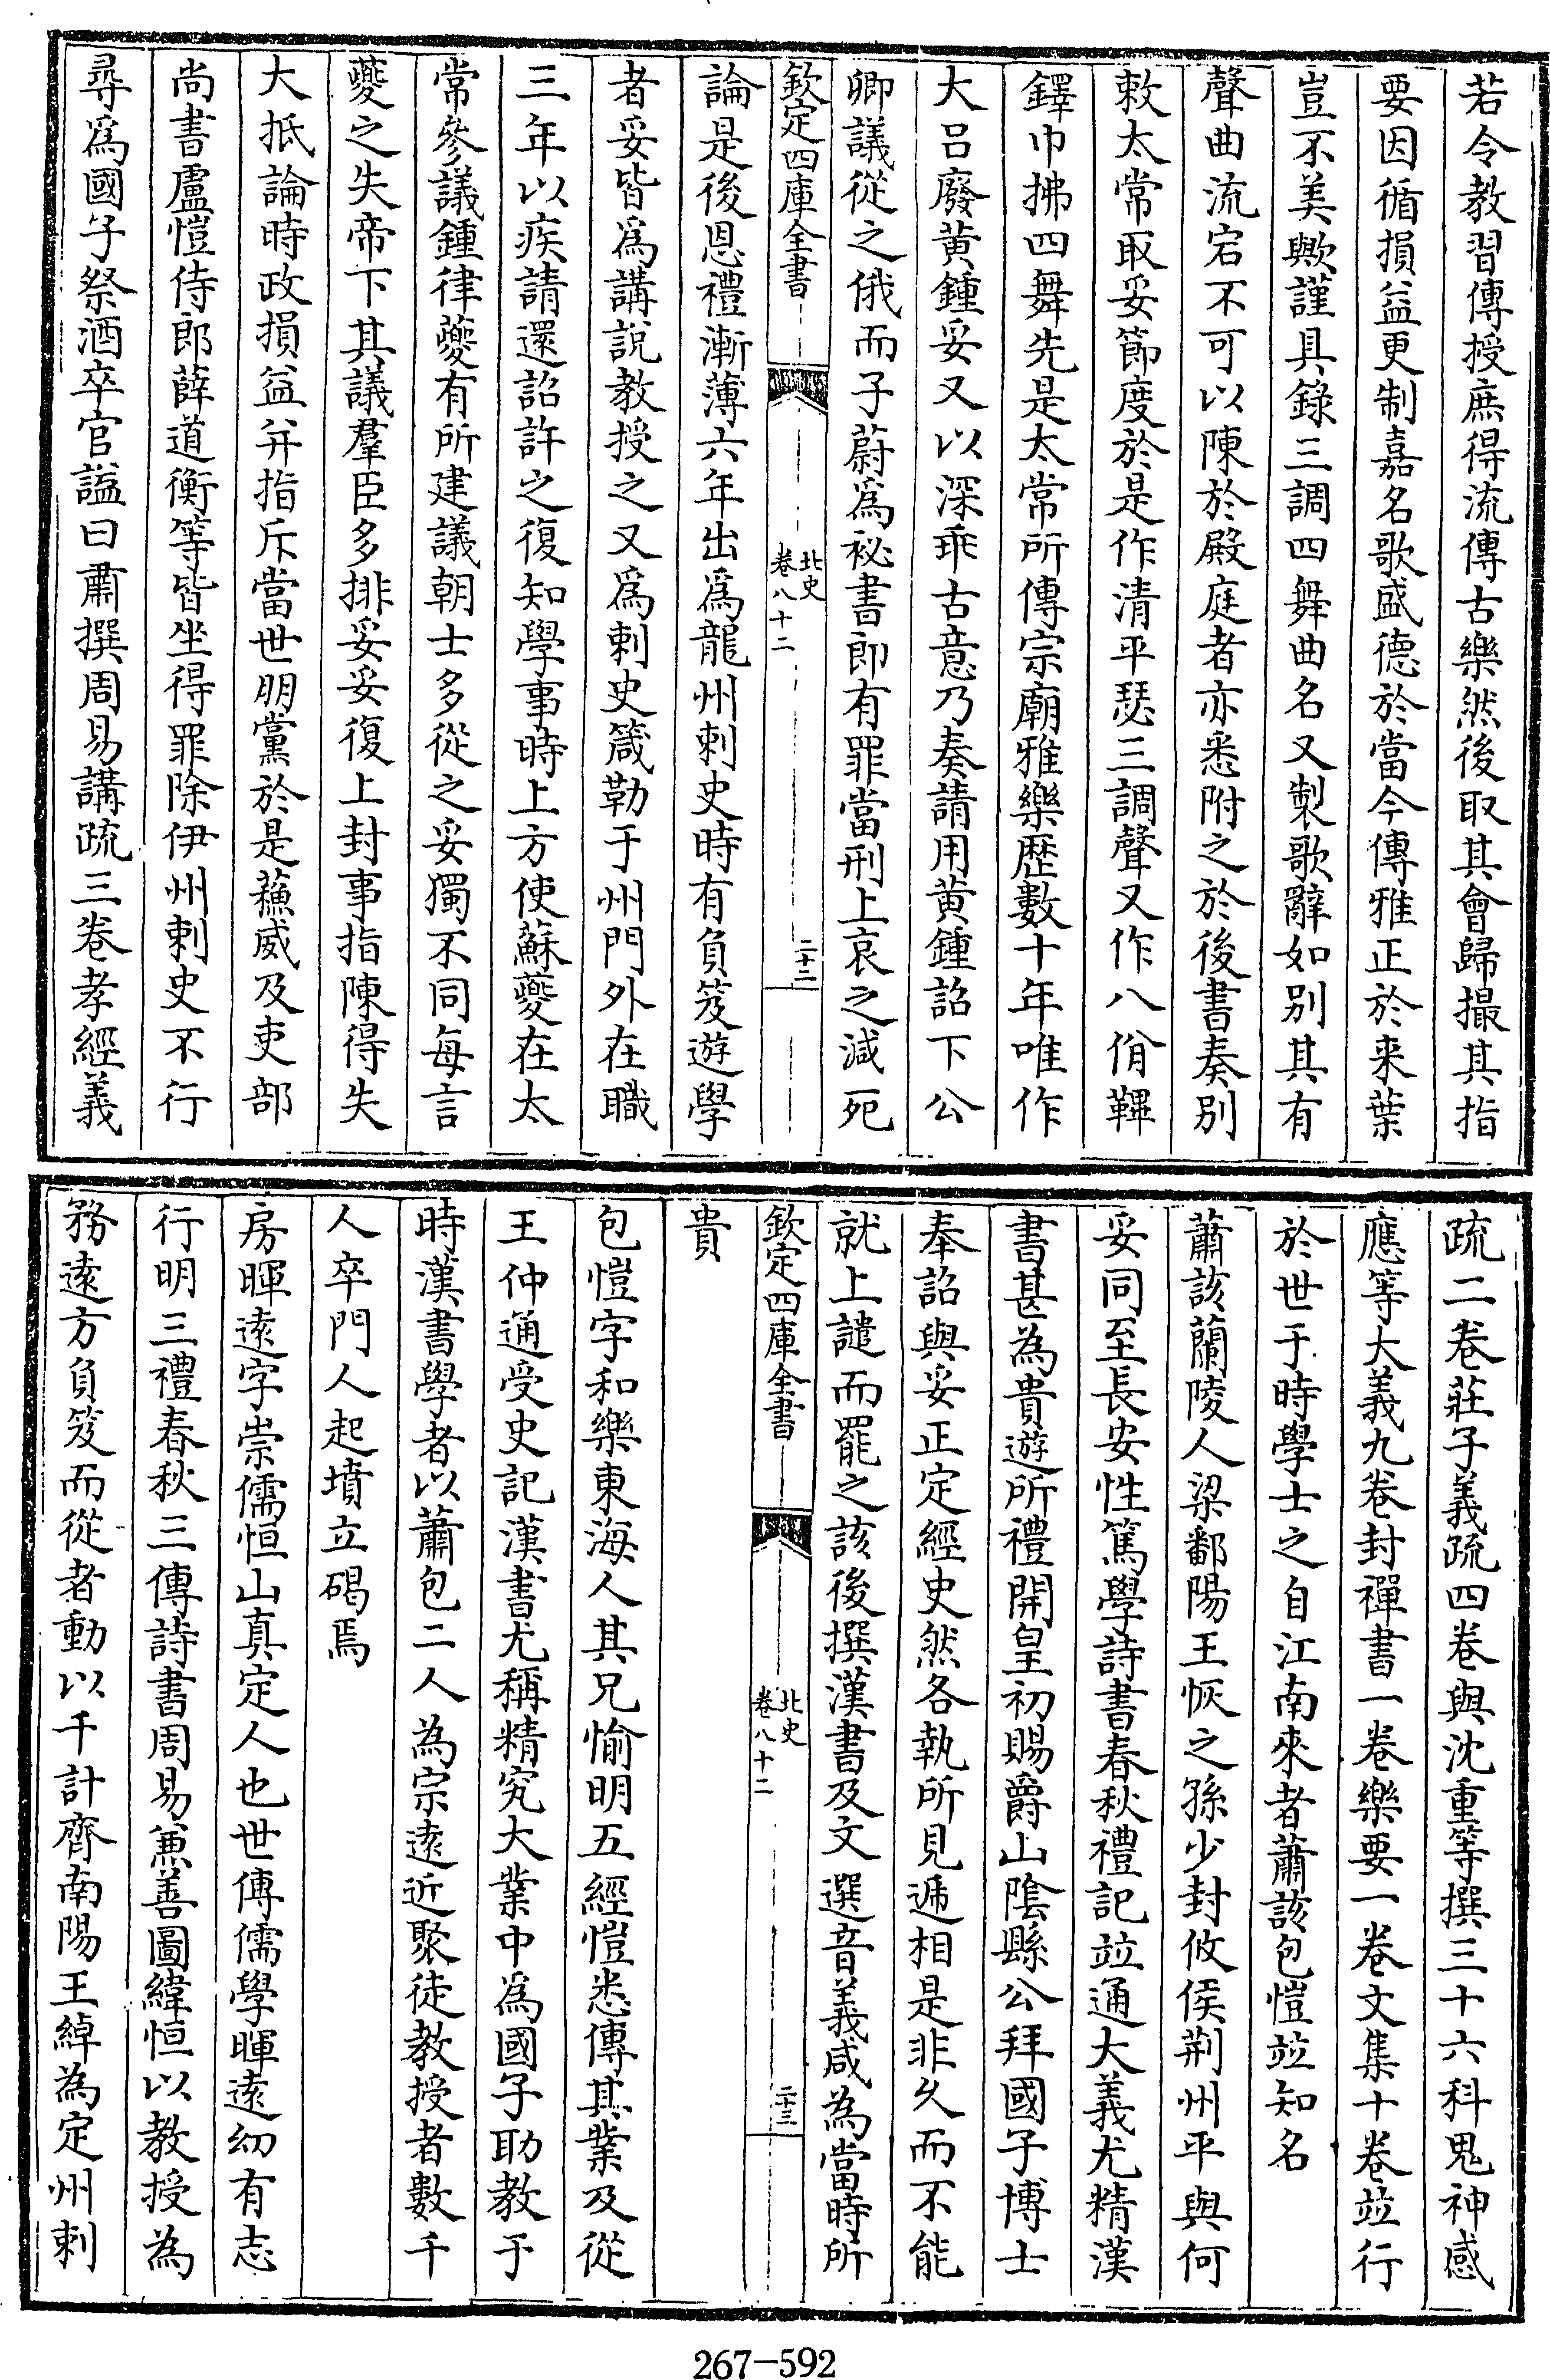 若令教習傳授庶得流傳古樂然後取其會歸撮其指
要因循損益更制嘉名歌盛德於當今傳雅正於来葉
豈不美歟謹具錄三調四舞曲名又製歌辭如别其有
聲曲流宕不可以陳於殿庭者亦悉附之於後書奏别
敕太常取妥節度於是作清平瑟三調聲又作八佾鞞
鐸巾拂四舞先是太常所傳宗廟雅樂歷數十年唯作
大吕廢黄鍾妥又以深乖古意乃奏請用黄鍾詔下公
卿議從之俄而子蔚爲祕書郎有罪當刑上哀之減死
欽定四庫全書
北史
卷八十二
二十二
論是後恩禮漸薄六年出爲龍州刺史時有負笈遊學
者妥皆爲講說教授之又爲刺史箴勒于州門外在職
三年以疾請還詔許之復知學事時上方使蘇夔在太
常參議鍾律夔有所建議朝士多從之妥獨不同每言
夔之失帝下其議羣臣多排妥妥復上封事指陳得失
大抵論時政損益并指斥當世朋黨於是蘓威及吏部
尚書盧愷侍郎薛道衡等皆坐得罪除伊州刺史不行
尋爲國子祭酒卒官諡曰肅撰周易講疏三卷孝經義
疏二卷莊子義疏四卷與沈重等撰三十六科鬼神感
應等大義九卷封禪書一卷樂要一卷文集十卷竝行
於世于時學士之自江南來者蕭該包愷竝知名
蕭該蘭陵人梁鄱陽王恢之孫少封攸侯荆州平與何
妥同至長安性篤學詩書春秋禮記竝通大義尤精漢
書甚為貴遊所禮開皇初賜爵山陰縣公拜國子博士
奉詔與妥正定經史然各執所見遞相是非久而不能
就上譴而罷之該後撰漢書及文選音義咸為當時所
欽定四庫全書
北史
卷八十二
二十三
貴
包愷字和樂東海人其兄愉明五經愷悉傳其業及從
王仲通受史記漢書尤稱精究大業中爲國子助教于
時漢書學者以蕭包二人為宗遠近聚徒教授者數千
人卒門人起墳立碣焉
房暉遠字崇儒恒山真定人也世傳儒學暉遠幼有志
行明三禮春秋三傳詩書周易兼善圖緯恒以教授為
務遠方負笈而從者動以千計齊南陽王綽為定州刺
267-592